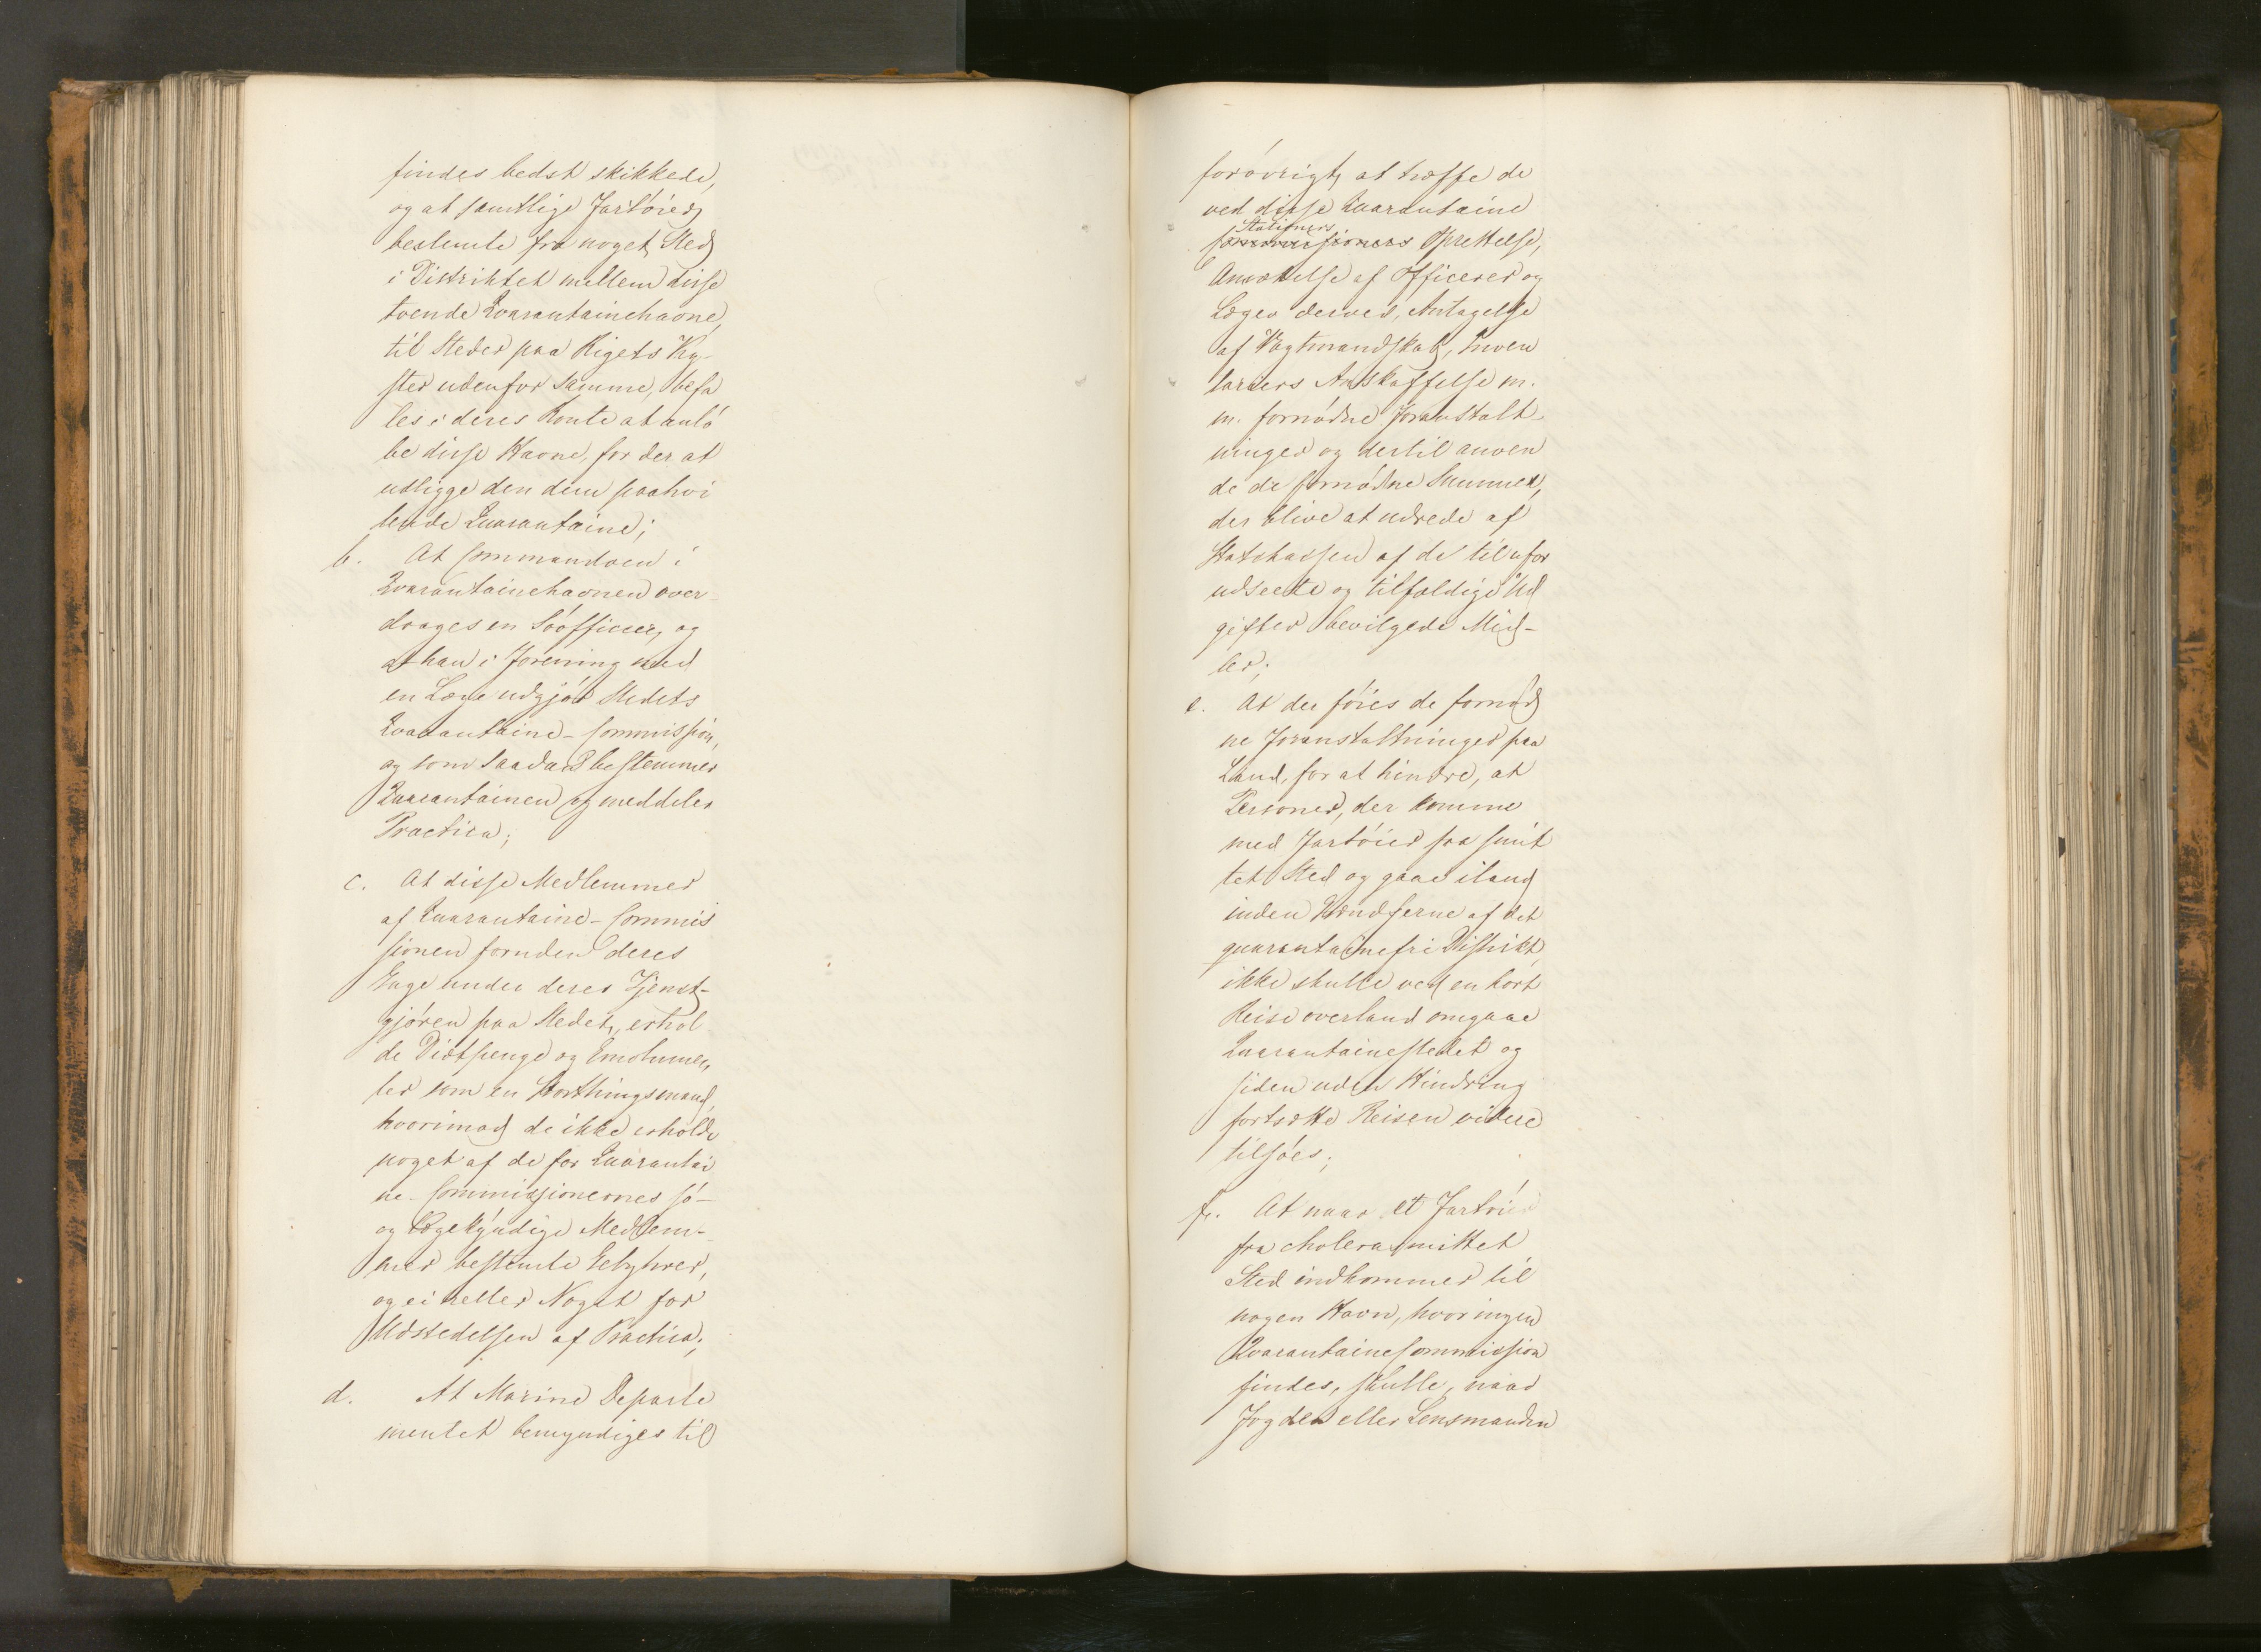 findes bedst skikkede,
og at samtlige Fartöier,
bestemte fra noget Sted
i Distriktet mellem disse
tvende Qvarantainehavne,
til Steder paa Rigets Ky-
ster udenfor samme, befa
les i deres Route at anlö
be disse Havne, for der at
udligge den dem paahvi
lende Quarantaine;
b. At Commandoen i
Qvarantainehavnen over
drages en Söofficier, og
at han i Forening med
en Læge udgjör Stedets
Qvarantaine-Commission,
og som saadan bestemmer
Quarantainen og meddeler
Practica;
c. At disse Medlemmer
af Quarantaine-Commis
sionen foruden deres
Gage under deres Tjenst-
gjören paa Stedet, erhol
de Diætpenge og Emolumen
ter som en Storthingsmand,
hvorimod de ikke erholde
noget af de for Quarantai
ne-Commissionernes sö-
og lægekyndige Medlem-
mer bestemte Gebyhrer,
og ei heller Noget for
Udstedelsen af Practica;
d. At Marine Departe
mentet bemyndiges til
forövrigt at træffe de
ved disse Quarantaine
Stationers
Commissioners Oprettelse,
Ansættelse af Officerer og
Læger derved, Antagelse
af Vagtmandskab, Inven
tariers Anskaffelse m.
m. fornödne Foranstalt-
ninger og dertil anven
de de fornödne Summer,
der blive at udrede af
Statskassen af de til ufor
udseete og tilfældige Ud
gifter bevilgede Mid-
ler;
e. At der föies de fornöd
ne Foranstaltninger paa
Land, for at hindre, at
Personer, der komme
med Fartöier fra smit
tet Sted og gaae iland
inden Grændserne af det
quarantainefri Distrikt,
ikke skulle ved en kort
Reise overland omgaae
Quarantainestedet og
siden uden Hindring
fortsætte Reisen videre
tilsöes;
f. At naar et Fartöi
fra cholerasmittet
Sted indkommer til
nogen Havn, hvor ingen
Qvarantaine Commission
findes, skulle, naar
Fogden eller Lensmanden